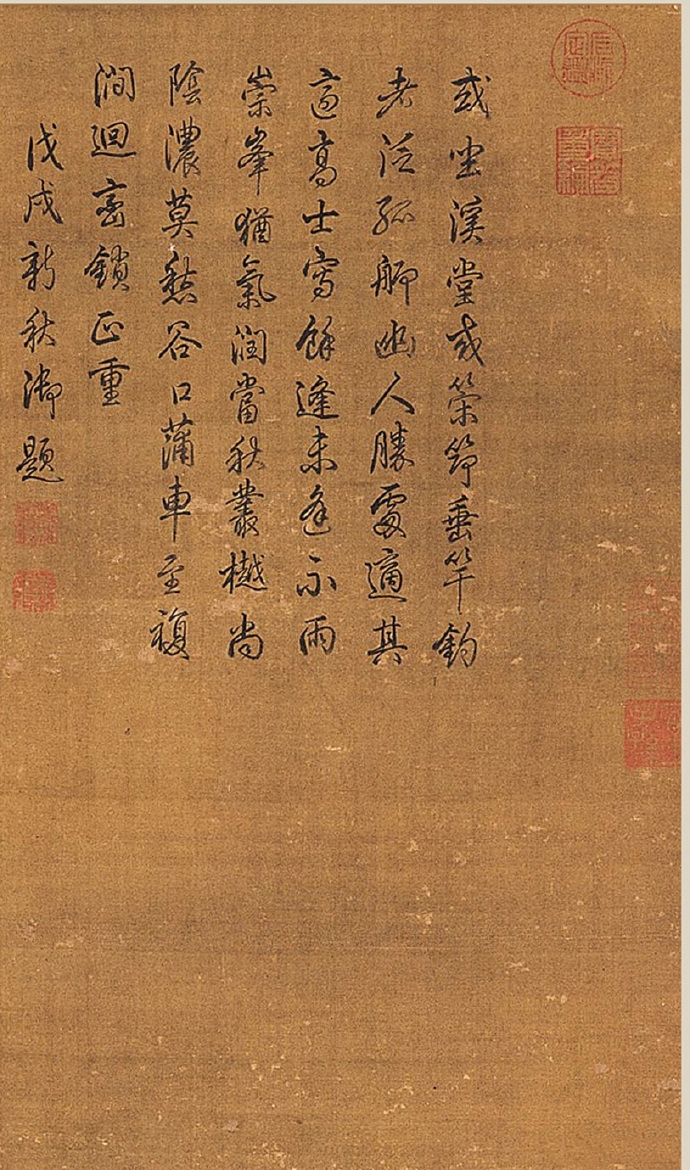 或坐溪堂或策筇垂竿釣
老泛孤幽人勝處適其
適高士寫餘逢未逢不雨
崇峯猶氣潤當秋叢樾尚
陰濃莫愁谷口蒲車至複
澗迴巒鎖正重
戊戌新秋御題